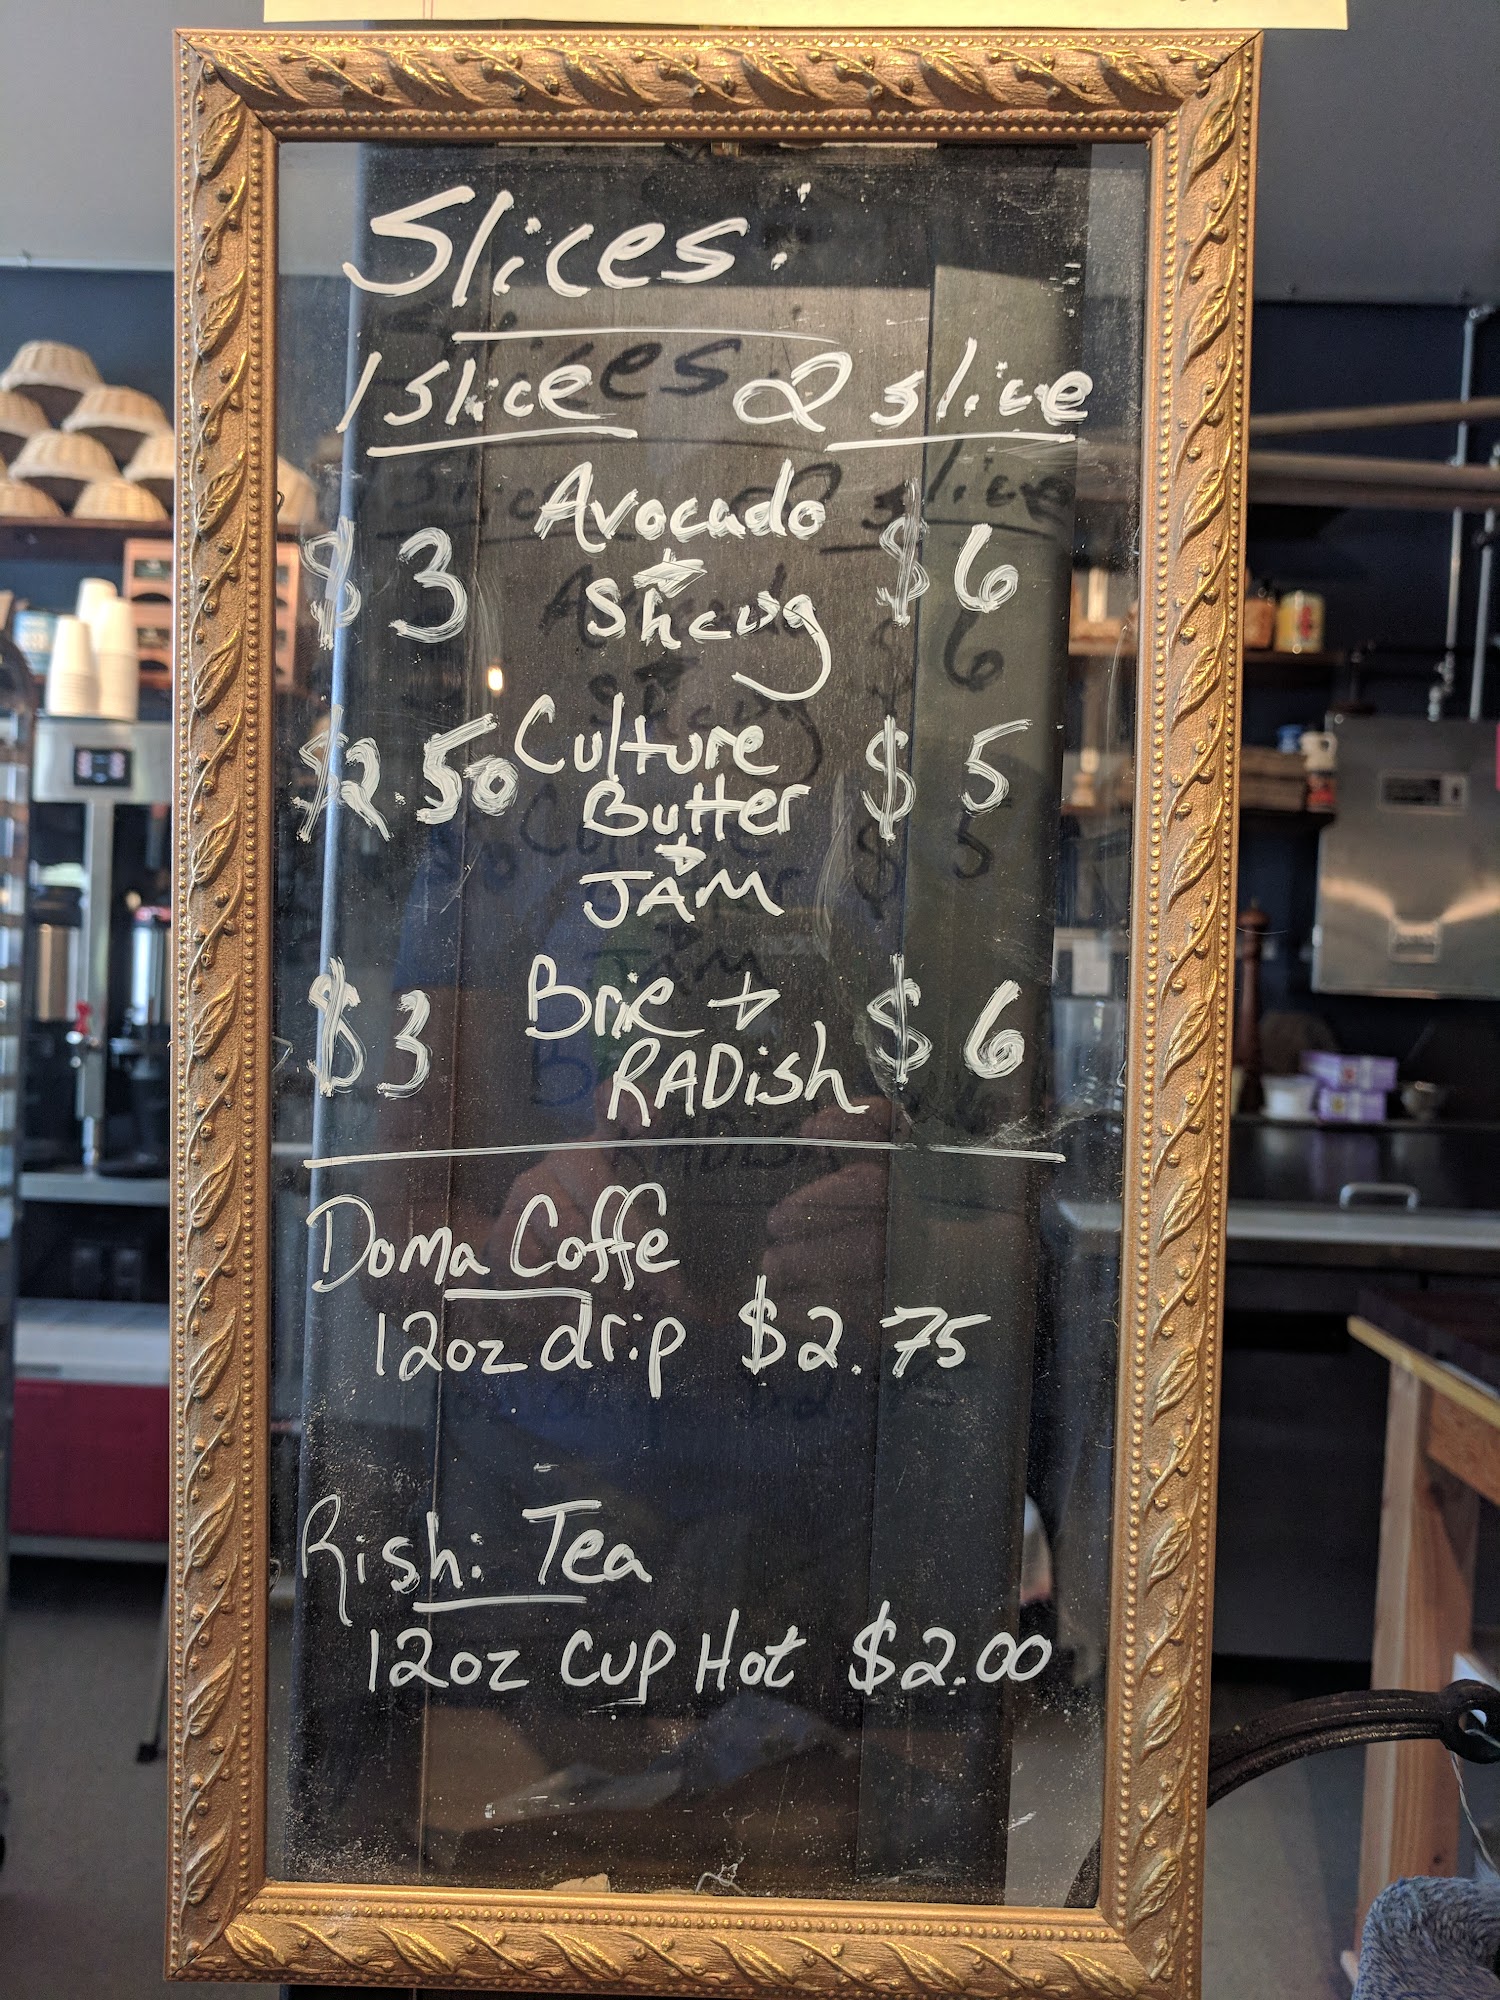 Slices:
1 slice 2 slice
$3 Avocado + Shcug $6
$2.50 Culture Butter + JAM $5
$3 Brie + RADish $6
Doma Coffe
12oz drip $2.75
Rishi Tea
12oz cup Hot $2.00